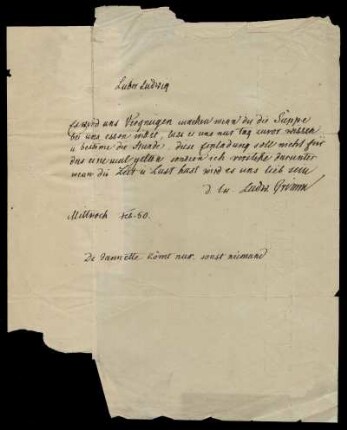 Lieber Ludwig
es wird uns Vergnügen machen wenn du die Suppe
bei uns essen willst, lass es uns nur tag zuvor wissen
u bestime die Stunde, diese Einladung soll nicht für
das eine mal gelten sondern ich verstehe darunter
wenn du Zeit u Lust hast wird es uns lieb sein
d. Lu. Grimm
Mittwoch 60.
kömt nur, sonst niemand